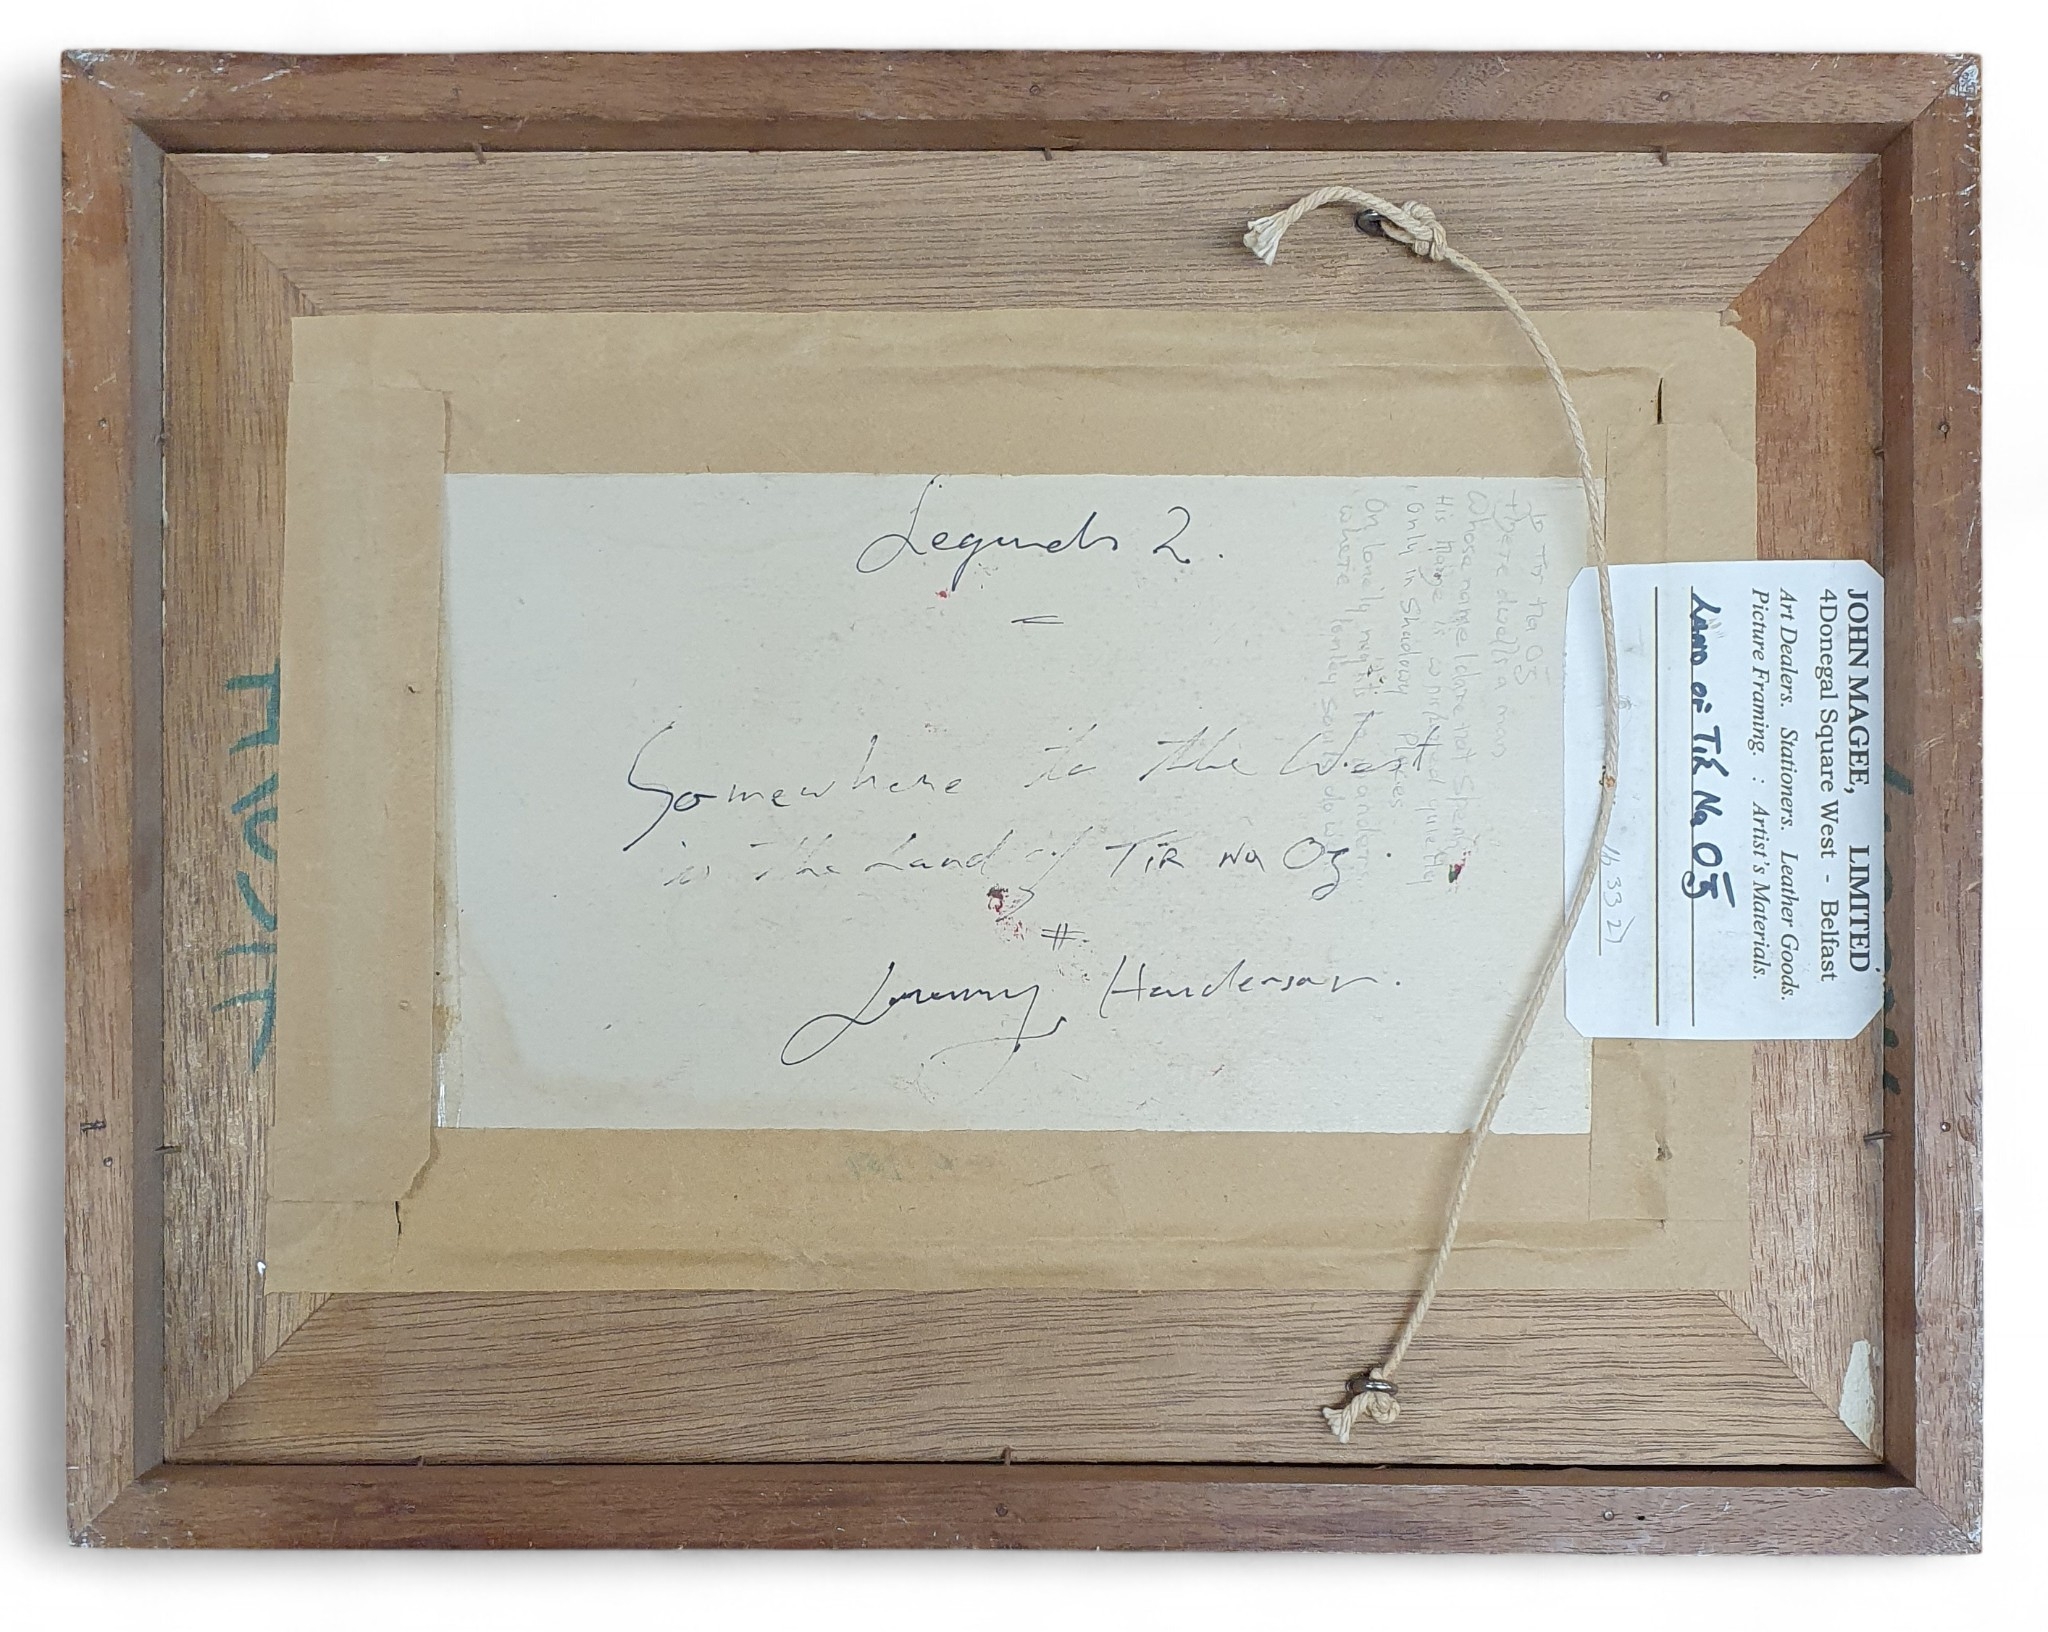 Legends 2.
Somewhere to the West
in the Land of TIR NA Og.
Jeremy Henderson.
In Tir na Og
there dwells a man
Whose name I dare not speak
His name is whispered quietly
Only in Shadowy places
On lonely nights he wanders
where lonley souls
JOHN MAGEE, LIMITED
4Donegal Square West - Belfast
Art Dealers. Stationers. Leather Goods.
Picture Framing. : Artist's Materials.
LAND OF TIR NA OG